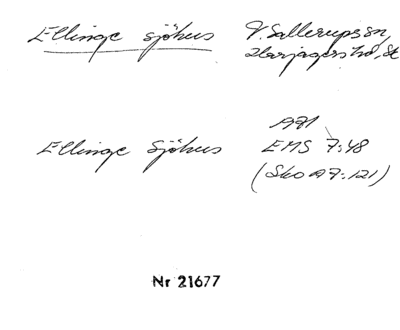 Ellinge sjöhus V. Sallerups sn,
Harjagers hd, Sk
1971
Ellinge sjöhus EMS 7:48
(Sko A 7:121)
Nr 21677